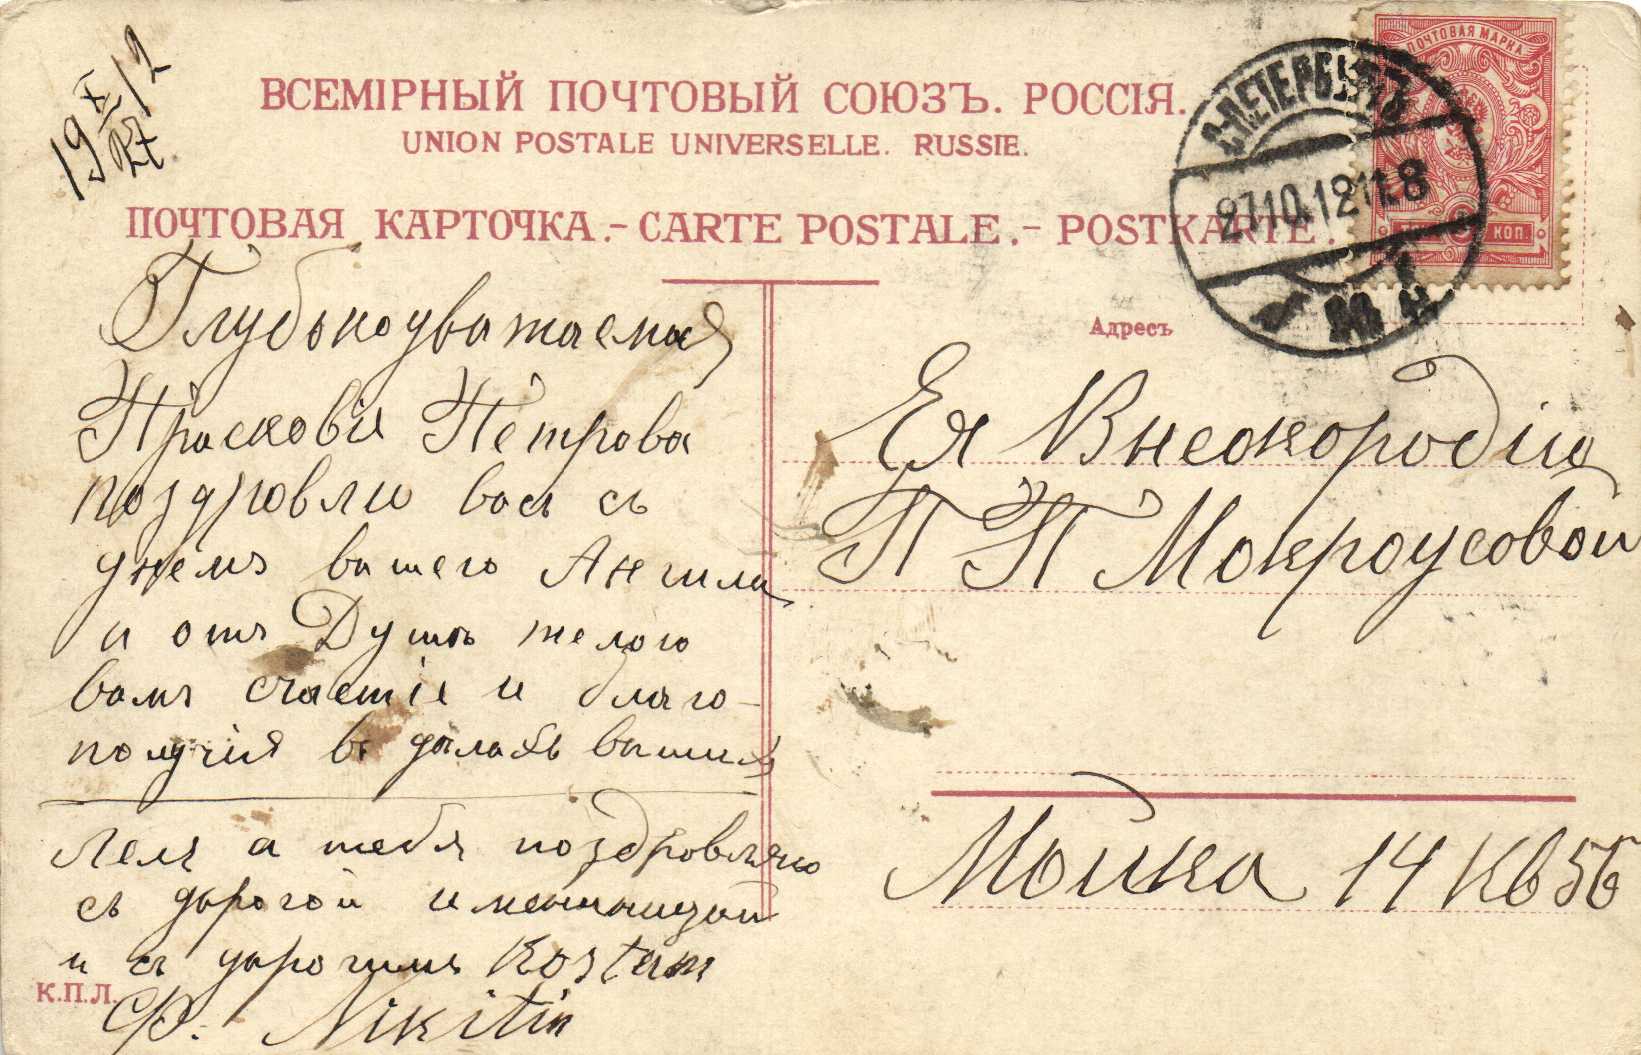 19 27/X 12
ВСЕМІРНЫЙ ПОЧТОВЫЙ СОЮЗЪ. РОССІЯ.
UNION POSTALE UNIVERSELLE. RUSSIE.
ПОЧТОВАЯ КАРТОЧКА.-CARTE POSTALE.-POSTKARTE.
ПОЧТОВАЯ МАРКА
КОП.
С-ПЕТЕРБУРГЪ
27.10.12 11.8
Глубокоуважаемая
Прасковія Петрова
поздровлю васъ съ
днемъ вашего Ангила
и отъ Душѣ желою
вамъ счастіе и благо-
получія въ дѣлахъ вашихъ
Леля а тебя поздровляю
съ дорогой именинницой
и съ дорогимъ
Ф. Nikitin
К.П.Л.
Адресъ
Ея Высокородію
П П Мокроусовой
Мойка 14 Кв 56